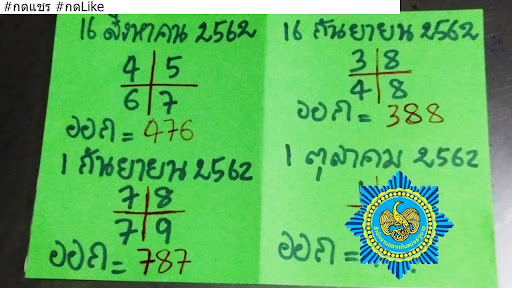 #กดแชร์ #กดLike
16 สิงหาคม 2562
4 5
6 7
ออก = 476
16 กันยายน 2562
3 8
4 8
ออก = 388
1 กันยายน 2562
7 8
7 9
ออก = 787
1 ตุลาคม 2562
ออก =